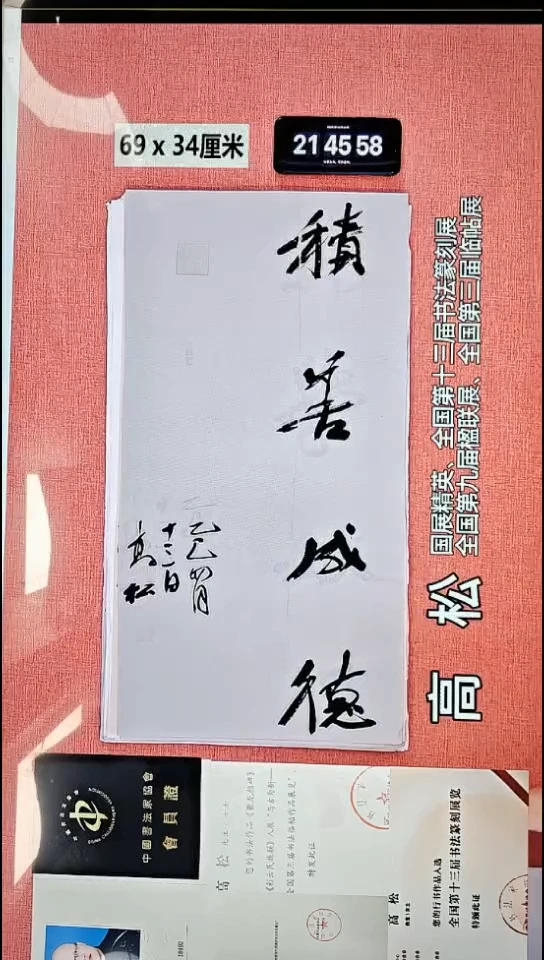 69 x 34厘米
21 45 58
積善成德
乙巳四月
十二日
高松
高 松
国展精英、全国第十三届书法篆刻展
全国第九届楹联展、全国第三届临帖展
中國書法家協會
會員證
高 松
特发此证
高 松
您的行书作品入选
全国第十三届书法篆刻展览
特颁此证